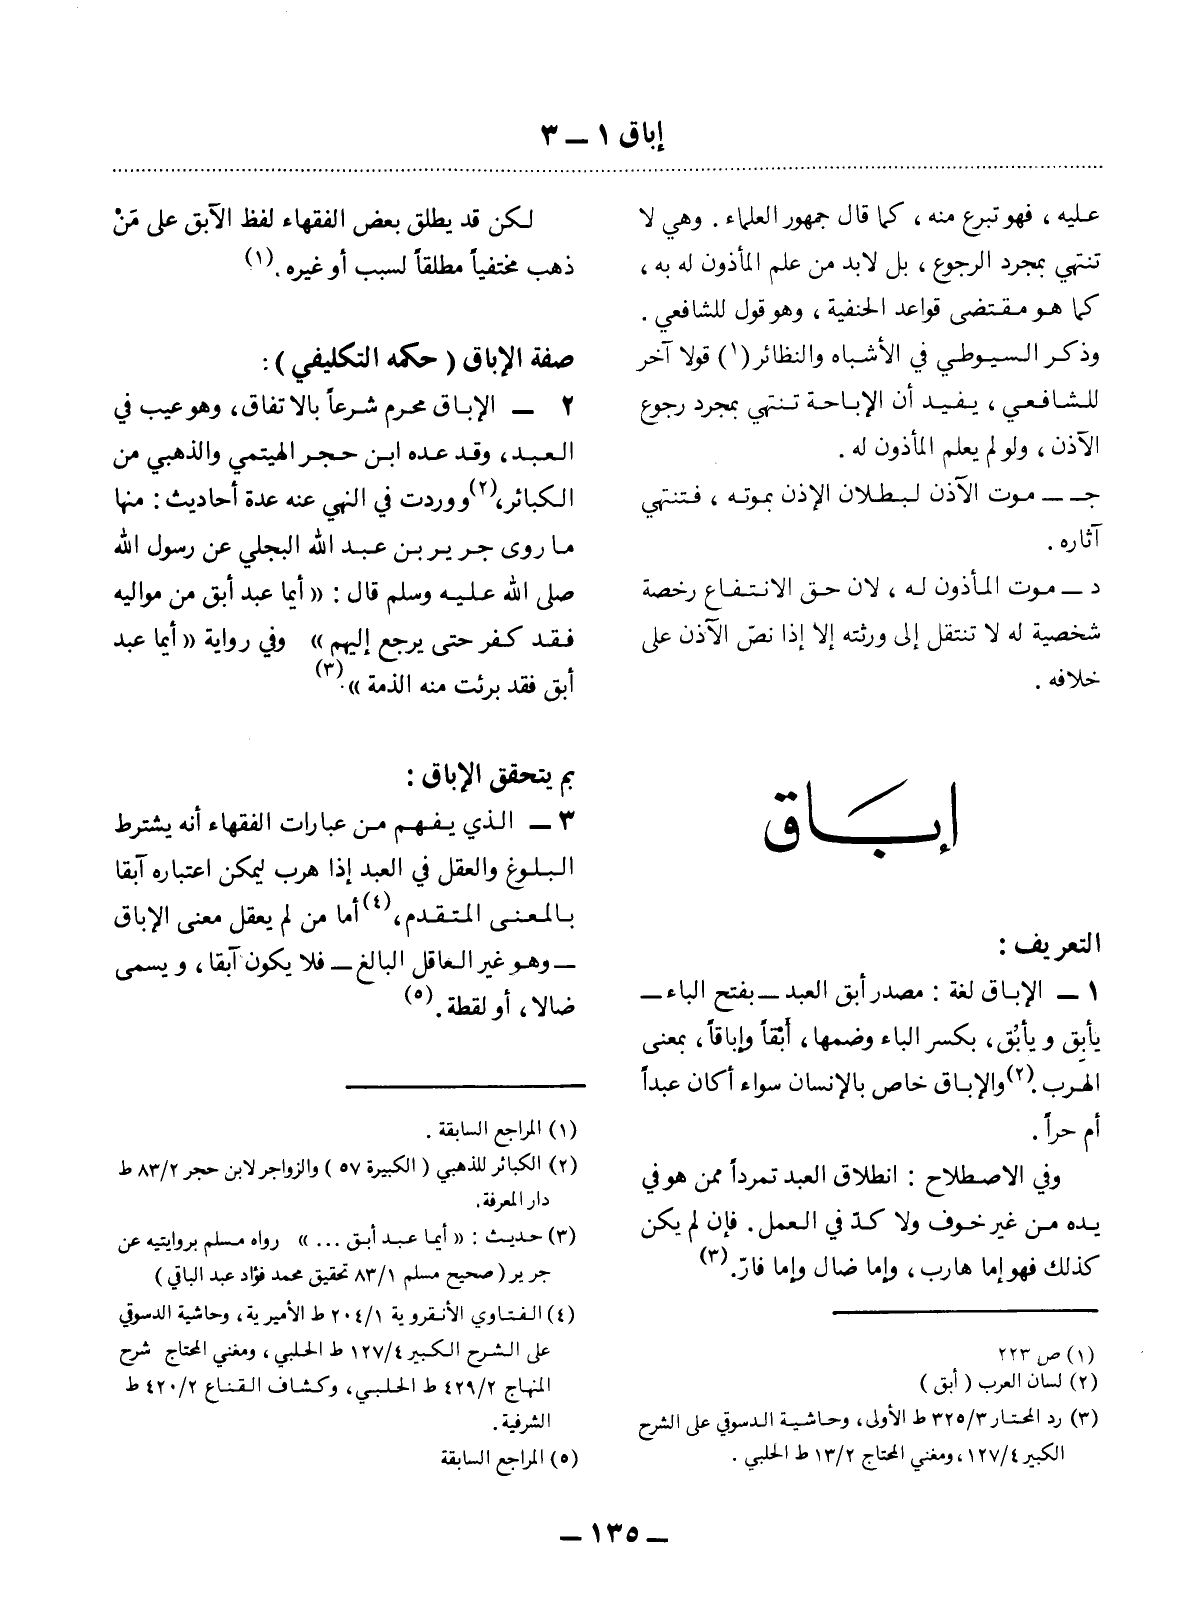 إباق ١ ــ ٣
عليه ، فهو تبرع منه ، كما قال جمهور العلماء . وهي لا
تنتهي بمجرد الرجوع ، بل لابد من علم المأذون له به ،
كما هو مقتضى قواعد الحنفية ، وهو قول للشافعي .
وذكر السيوطي في الأشباه والنظائر (١) قولا آخر
للشافعي ، يفيد أن الإباحة تنتهي بمجرد رجوع
الآذن ، ولو لم يعلم المأذون له .
جـ ــ موت الآذن لبطلان الإذن بموته ، فتنتهي
آثاره .
د ــ موت المأذون له ، لان حق الانتفاع رخصة
شخصية له لا تنتقل إلى ورثته إلا إذا نصّ الآذن على
خلافه .
إبَاق
التعريف :
١ ــ الإباق لغة : مصدر أبق العبد ــ بفتح الباء ــ
يأبِق ويأبُق، بكسر الباء وضمها، أَبْقاً وإباقاً، بمعنى
الهرب.(٢) والإباق خاص بالإنسان سواء أكان عبداً
أم حراً .
وفي الاصطلاح : انطلاق العبد تمرداً ممن هو في
يده من غير خوف ولا كدّ في العمل. فإن لم يكن
كذلك فهو إما هارب، وإما ضال وإما فارّ.(٣)
(١) ص ٢٢٣
(٢) لسان العرب ( أبق )
(٣) رد المحتار ٣٢٥/٣ ط الأولى، وحاشية الدسوقي على الشرح
الكبير ١٢٧/٤، ومغني المحتاج ١٣/٢ ط الحلبي .
لكن قد يطلق بعض الفقهاء لفظ الآبق على مَنْ
ذهب مختفياً مطلقاً لسبب أو غيره.(١)
صفة الإباق ( حكمه التكليفي ) :
٢ ــ الإباق محرم شرعاً بالاتفاق، وهو عيب في
العبد، وقد عده ابن حجر الهيتمي والذهبي من
الكبائر،(٢) ووردت في النهي عنه عدة أحاديث : منها
ما روى جرير بن عبد الله البجلي عن رسول الله
صلى الله عليه وسلم قال : « أيما عبد أبق من مواليه
فقد كفر حتى يرجع إليهم » وفي رواية « أيما عبد
أبق فقد برئت منه الذمة ».(٣)
بم يتحقق الإباق :
٣ ــ الذي يفهم من عبارات الفقهاء أنه يشترط
البلوغ والعقل في العبد إذا هرب ليمكن اعتباره آبقا
بالمعنى المتقدم،(٤) أما من لم يعقل معنى الإباق
ــ وهو غير العاقل البالغ ــ فلا يكون آبقا، ويسمى
ضالا، أو لقطة.(٥)
(١) المراجع السابقة .
(٢) الكبائر للذهبي ( الكبيرة ٥٧ ) والزواجر لابن حجر ٨٣/٢ ط
دار المعرفة.
(٣) حديث : « أيما عبد أبق ... » رواه مسلم بروايتيه عن
جرير ( صحيح مسلم ٨٣/١ تحقيق محمد فؤاد عبد الباقي )
(٤) الفتاوي الأنقروية ٢٠٤/١ ط الأميرية، وحاشية الدسوقي
على الشرح الكبير ١٢٧/٤ ط الحلبي، ومغني المحتاج شرح
المنهاج ٤٢٩/٢ ط الحلبي، وكشاف القناع ٤٢٠/٢ ط
الشرفية .
(٥) المراجع السابقة
ــ ١٣٥ ــ